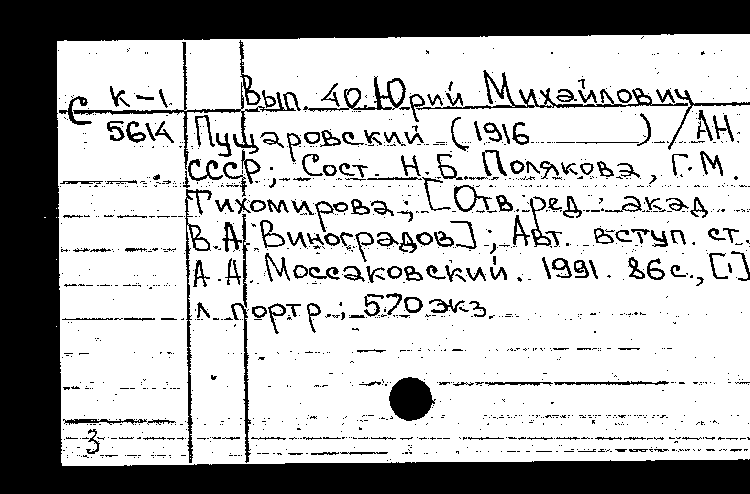 С К-1 Вып. 40. Юрий Михайлович
561К Пущаровский (1916 ) / АН
СССР; Сост. Н.Б. Полякова, Г.М.
Тихомирова; [Отв. ред. : акад.
В.А. Виноградов]; Авт. вступ. ст.
А.А. Моссаковский. 1991. 86 с., [1]
л. портр.; 570 экз.
3